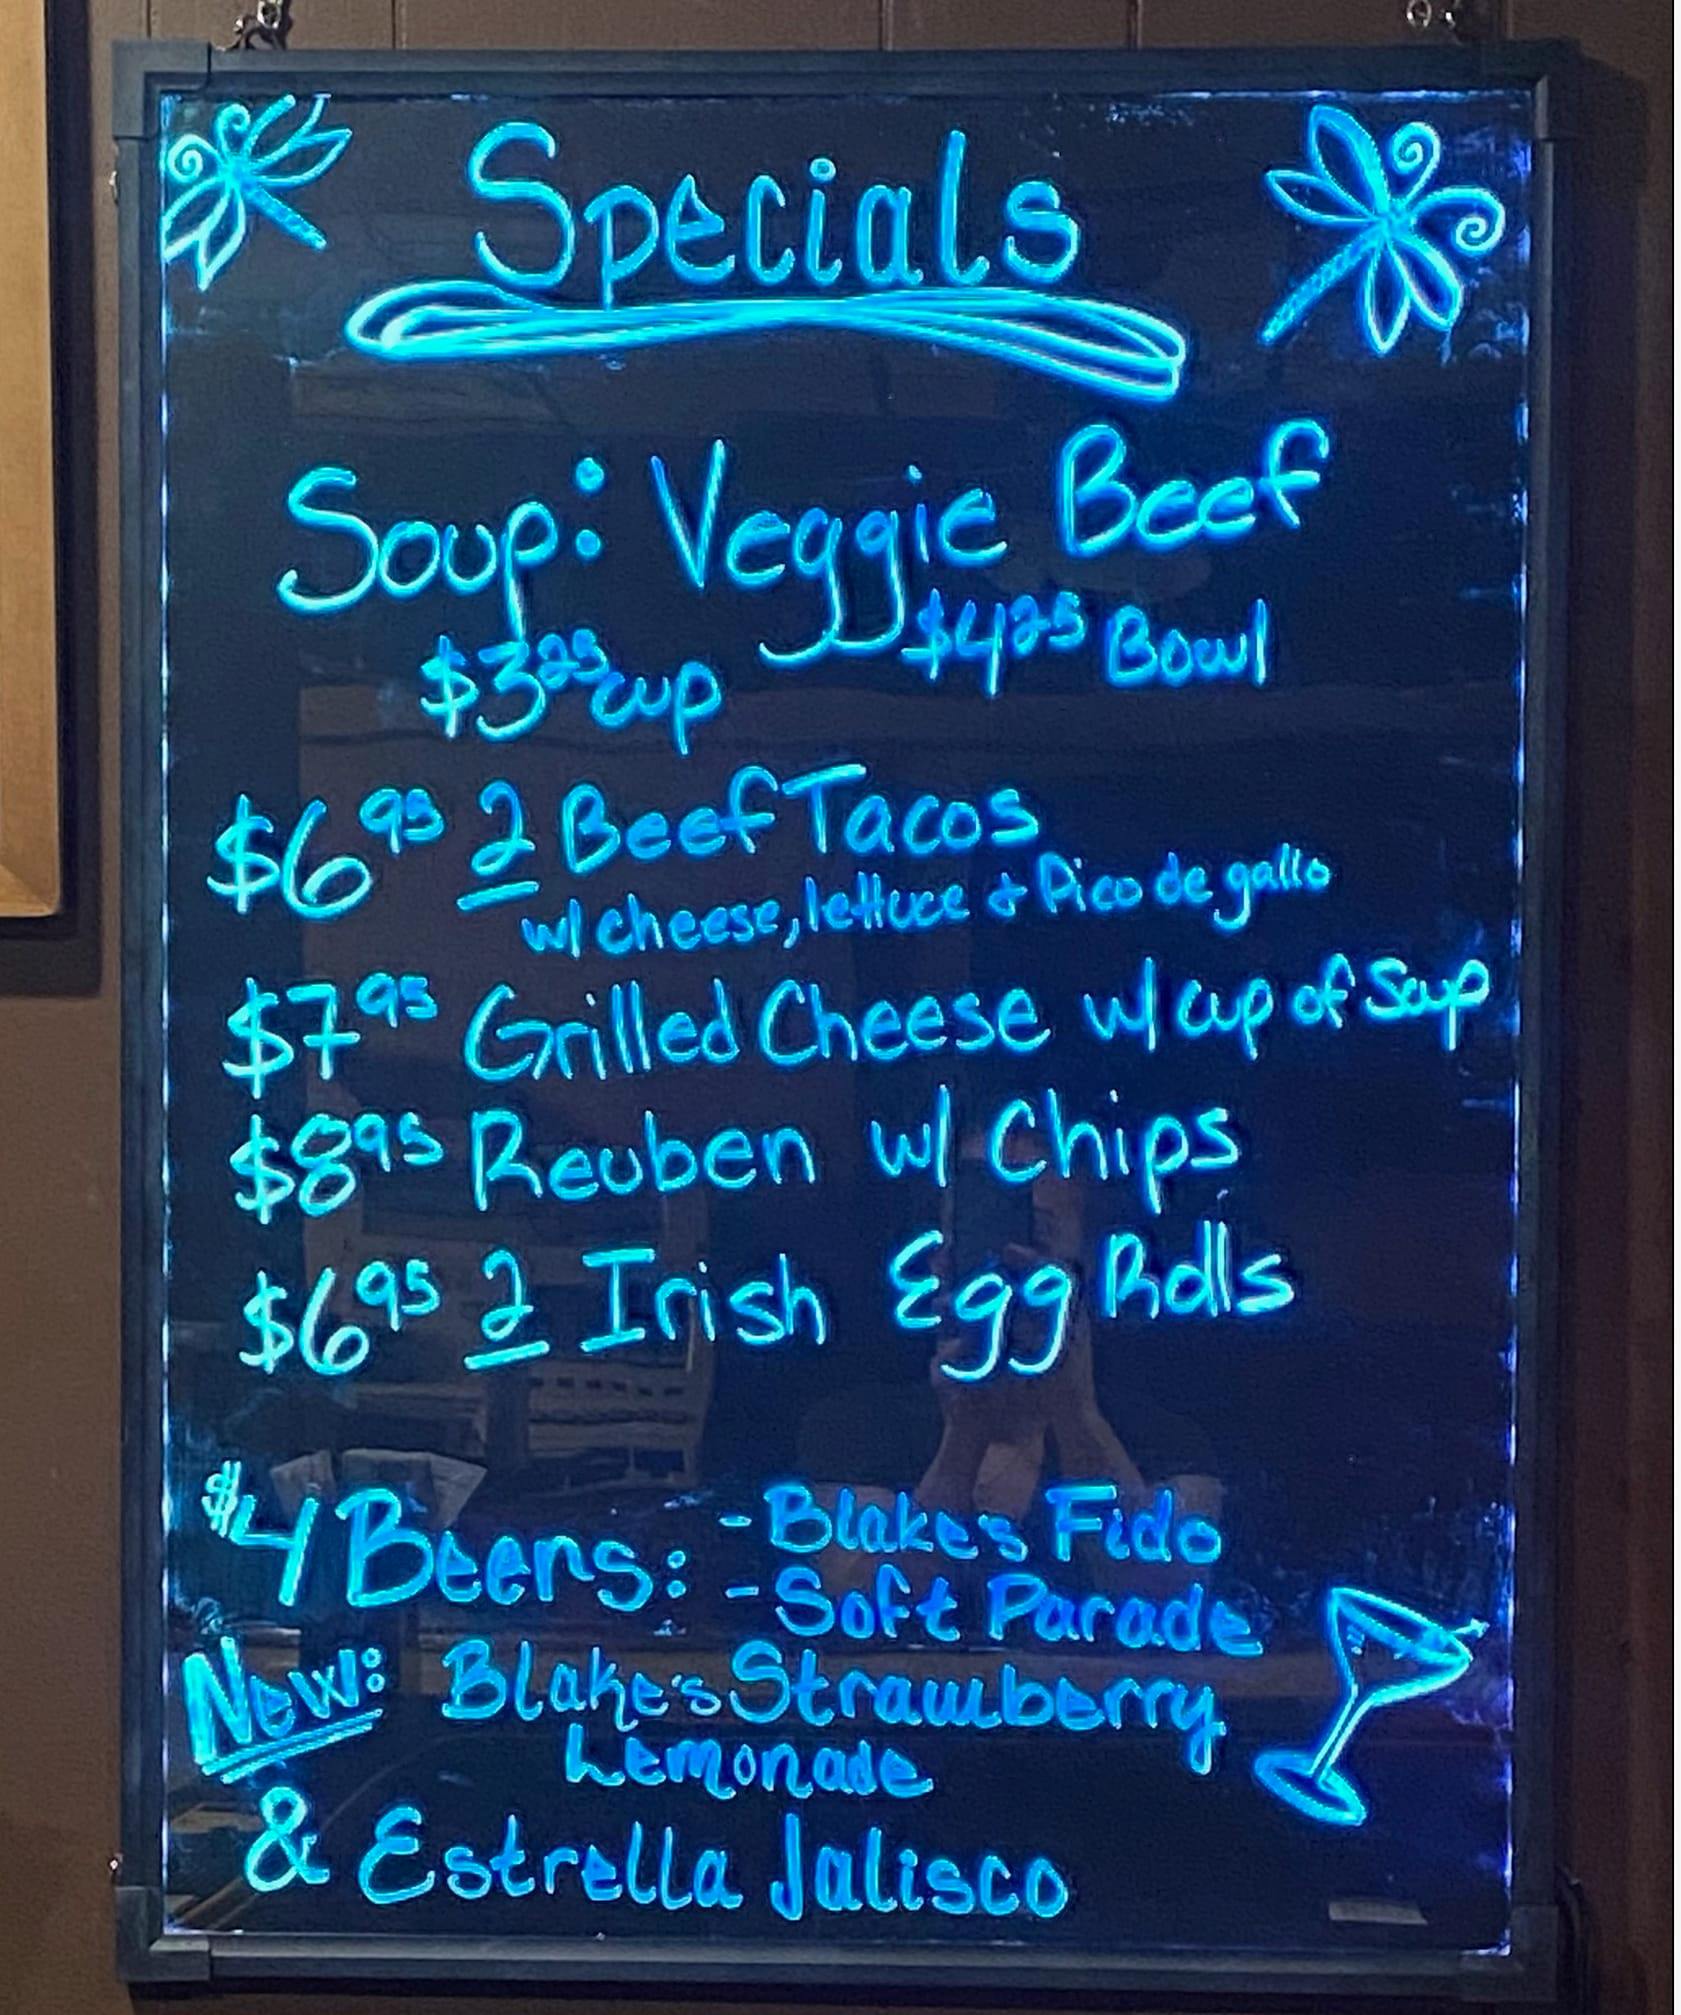 Specials
Soup: Veggie Beef
$3.25 cup $4.25 Bowl
$6.95 2 Beef Tacos
w/ cheese, lettuce & Pico de gallo
$7.95 Grilled Cheese w/ cup of Soup
$8.95 Reuben w/ Chips
$6.95 2 Irish Egg Rolls
$4 Beers: - Blake's Fido
- Soft Parade
New: Blake's Strawberry
Lemonade
& Estrella Jalisco